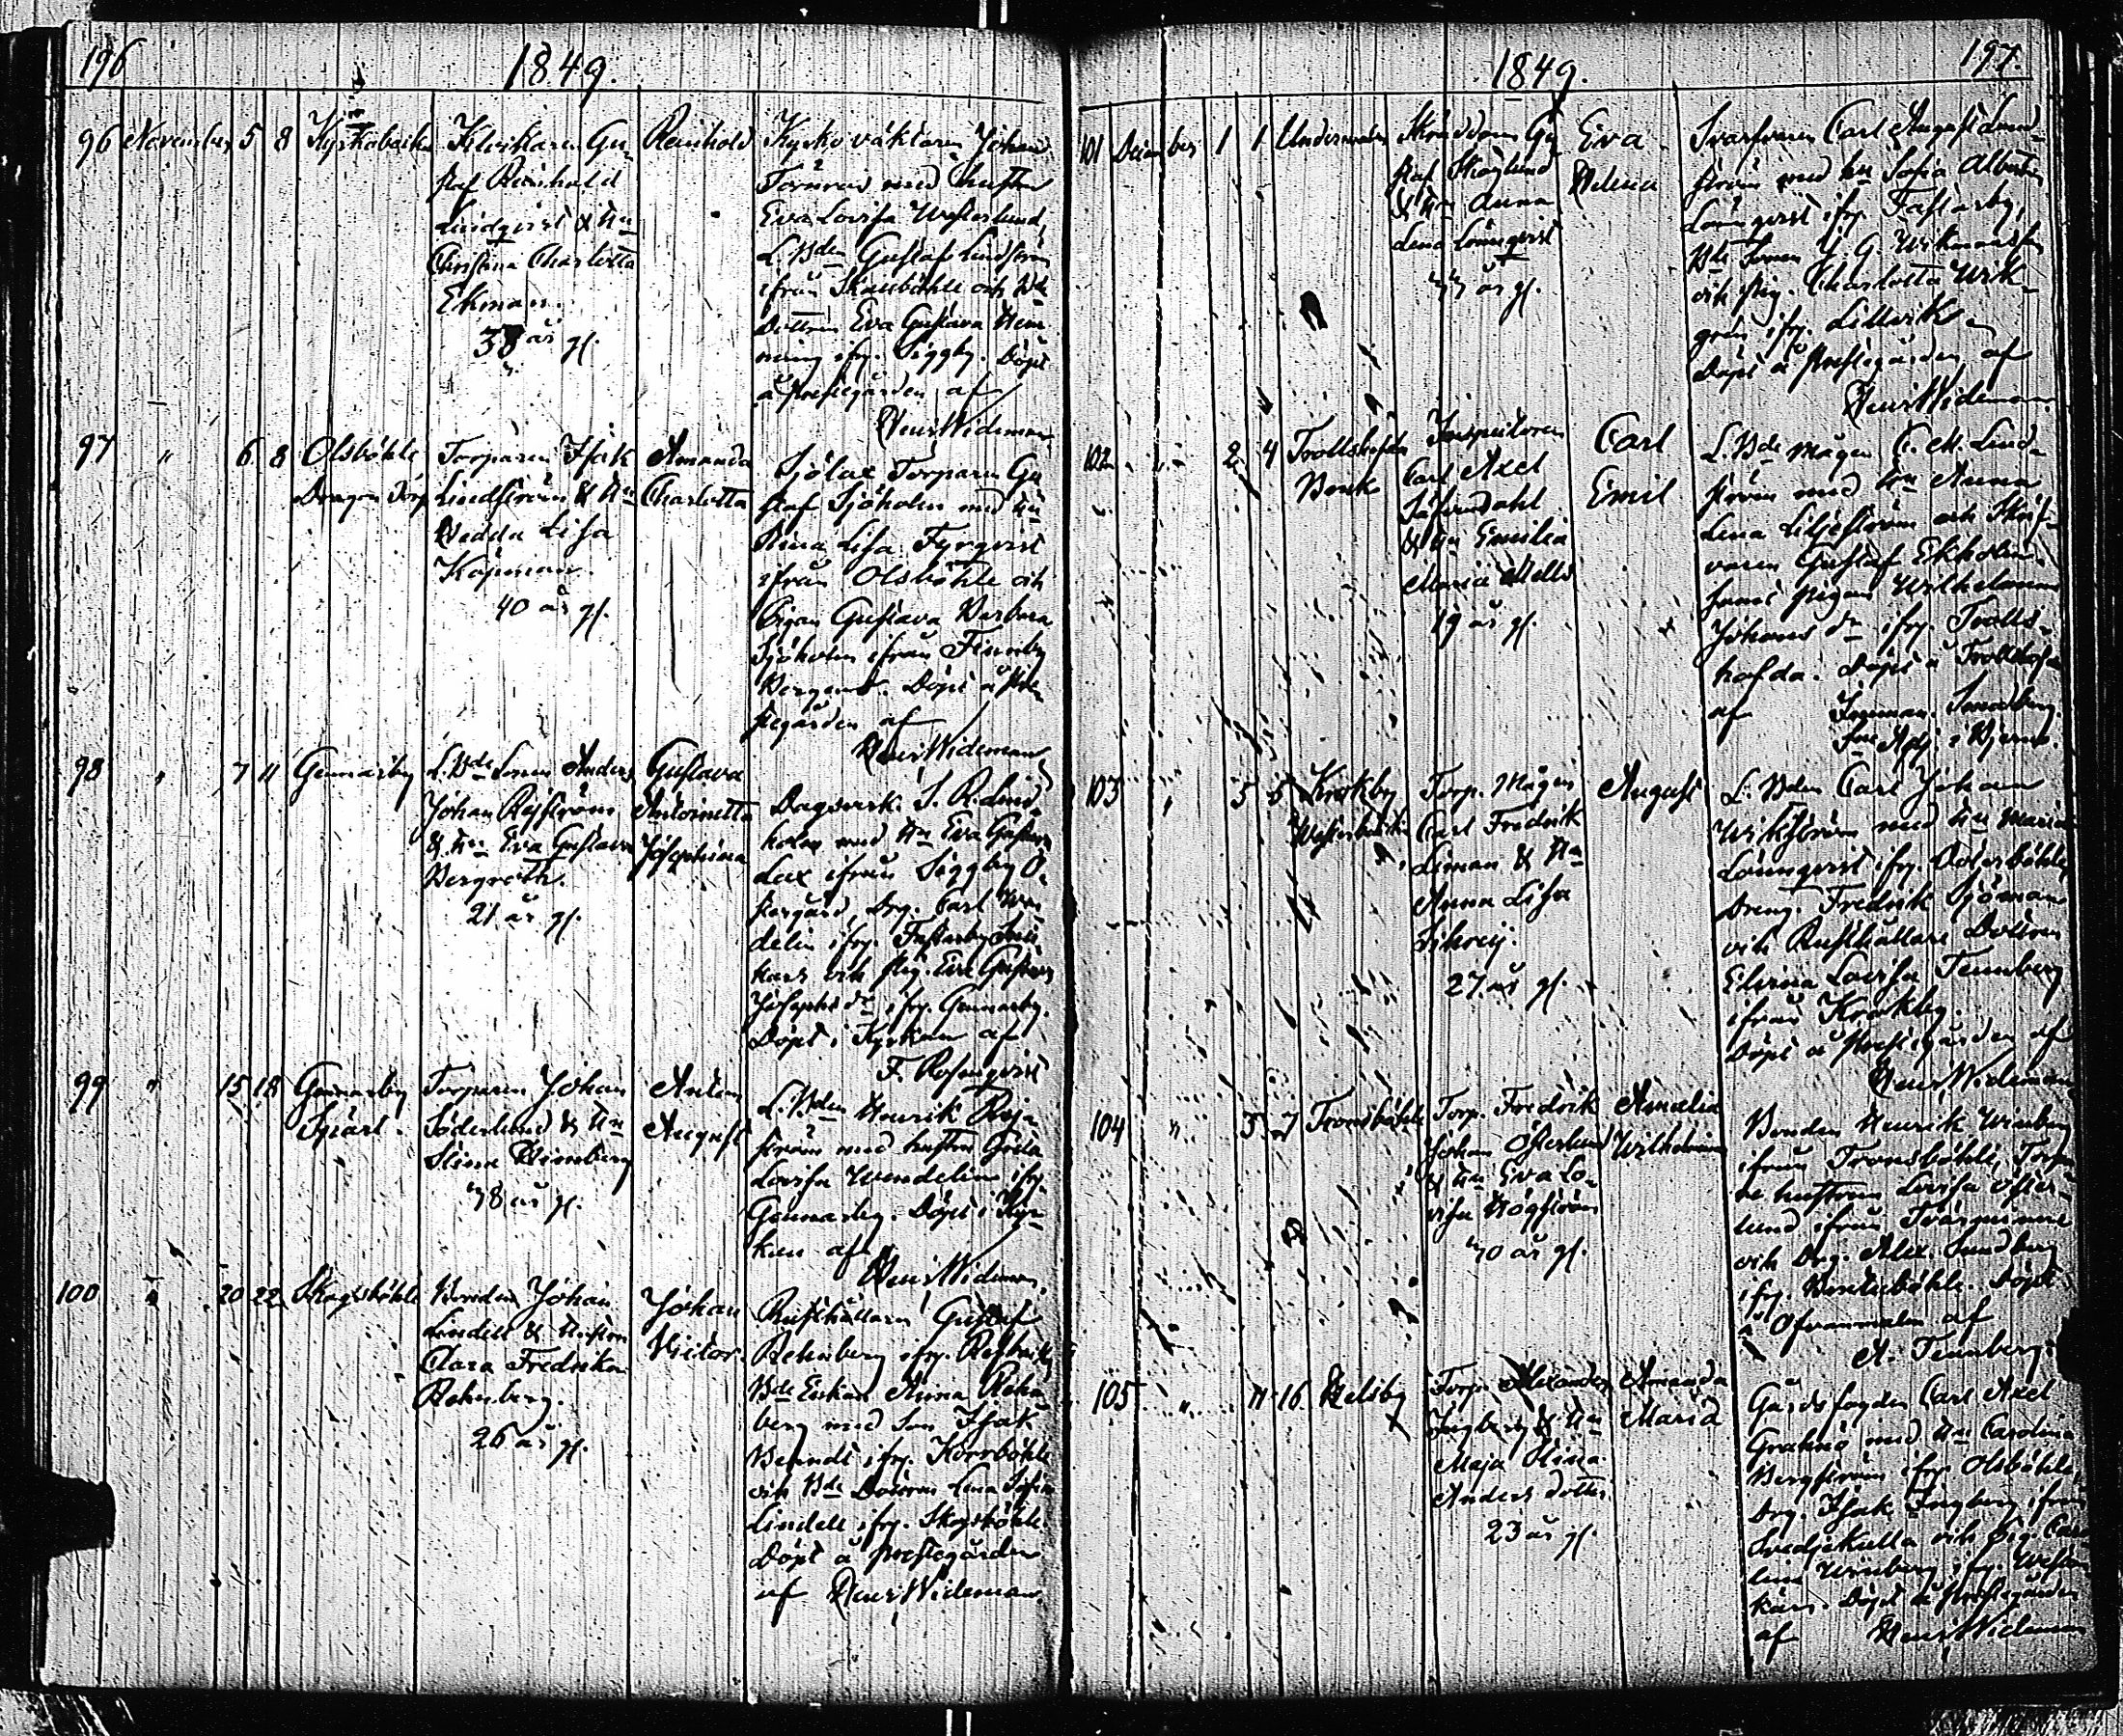 196
1849.
96 November 5 8 Kyrkobacken
Klockaren Gu-
staf Reinhold
Lindqvist & Hu
Christina Charlotta
Ekman.
38 år gl.
Reinhold
Kyrko väktaren Johan
Törnros med hustru
Eva Lovisa Westerlund,
L. Bden Gustaf Lindström
ifrån Skinnböhle och Bde
Dottren Eva Gustava Hem-
ming ifrg. Siggby. Döpt
å Prestegården af
Henr Wideman
97 " 6 8 Olsböhle
Dragon Torp
Torparen Isak
Lindström & Hu
Hedda Lisa
Köpman.
40 år gl.
Amanda
Charlotta
Sjölax Torparen Gu
staf Sjöholm med hu
Stina Lisa Fyrqvist
ifrån Olsböhle och
Pigan Gustava Barbara
Sjöholm ifrån Finnby
Döpt å Pre-
stegården af
Henr Wideman
98 " 7 11 Gennarby
L. Bde Sonen Anders
Johan Rejström
& Hu Eva Gustava
Bergroth.
21 år gl.
Gustava
Antoinetta
Josephina
Dagsverk. S. R. Lind-
holm med Hu Eva Gustava
Lax ifrån Siggby Ö-
stergård, Drg. Carl Wen-
delin ifrg. Fastarby
och pig. Eva Gustava
Josephs dr ifrg. Gennarby.
Döpt i Kyrkan af
F. Rosenqvist
99 " 15 18 Gennarby
Torparen Johan
Söderlund & Hu
Stina Winberg
38 år gl.
Anton
August
L. Bden Henrik Rej-
ström med hustru Greta
Lovisa Wendelin ifrg.
Gennarby. Döpt i Kyr-
kan af
Henr Wideman
100 " 20 22 Skogsböhle
Bonden Johan
Lindell & Hustru
Clara Fredrika
Rehnberg.
26 år gl.
Johan
Victor
Rusthållaren Gustaf
Rehnberg ifrg.
Bde Enkan Anna Rehn-
berg med Son Isak
Berndt ifrg. Korsböhle
och Bde Dottren Lena Sofia
Lindell ifrg. Skogsböhle.
Döpt å Prestegården
af Henr Wideman.
1849.
197.
101 December 1 1 Undermalm
Skräddaren Gu
staf Höglund
& Hu Anna
Lena Lönnqvist
år gl.
Eva
Helena
Svarfvaren Carl August Lind-
ström med hu Sofia Albertina
Lönnqvist ifrg. Fastarby,
Bde Sonen J. G. Wikman
och pig. Charlotta Wik-
gren ifrg. Lillvik
Döpt å Prestegården af
Henr Wideman
102 " 2 4 Trollshofda
Bruk
Inspectoren
Carl Axel
& Hu Emilia
Maria
19 år gl.
Carl
Emil
L. Bde Mågen C. M. Lind-
ström med hu Anna
Lena Liljeström och
Gustaf Ekholm
pigan Wilhelmina
Johans dr ifrg. Trolls-
hofda. Döpt å Trollshofda
af
103 " 5 5 Krokby
Westerbacka
Torp. Mågen
Carl Fredrik
Liman & Hu
Anna Lisa
27 år gl.
August
L. Bden Carl Johan
Wikström med hu Maria
Lönnqvist ifrg.
Dreng. Fredrik Sjöman
och Rusthållare Dottren
Elvina Lovisa Tennberg
ifrån Krokby.
Döpt å Prestegården af
Henr Wideman
104 " 5 7 Tronsböhle
Torp. Fredrik
Johan Österlund
& Hu Eva Lo-
visa Högström
30 år gl.
Amalia
Wilhelmina
Bonden Henrik Winberg
ifrån Tronsböhle, Torpa-
re hustrun Lovisa Öster-
lund ifrån Tvärminne
och Drg. Alex. Sundberg
ifrg. Döpt
å Ofvanmalm af
A. Tennberg.
105 " 11 16 Relsby
Torp. Alexander
Ingberg & Hu
Maja Stina
Anders dotter
23 år gl.
Amanda
Maria
Gårdsfogden Carl Axel
med Hu Carolina
Bergström ifrg. Olsböhle,
Drg. Isak Ingberg ifrån
Svedjekulla och Pig. Caro
lina Winberg ifrg. Wester
kärr. Döpt å Prestegården
af Henr Wideman